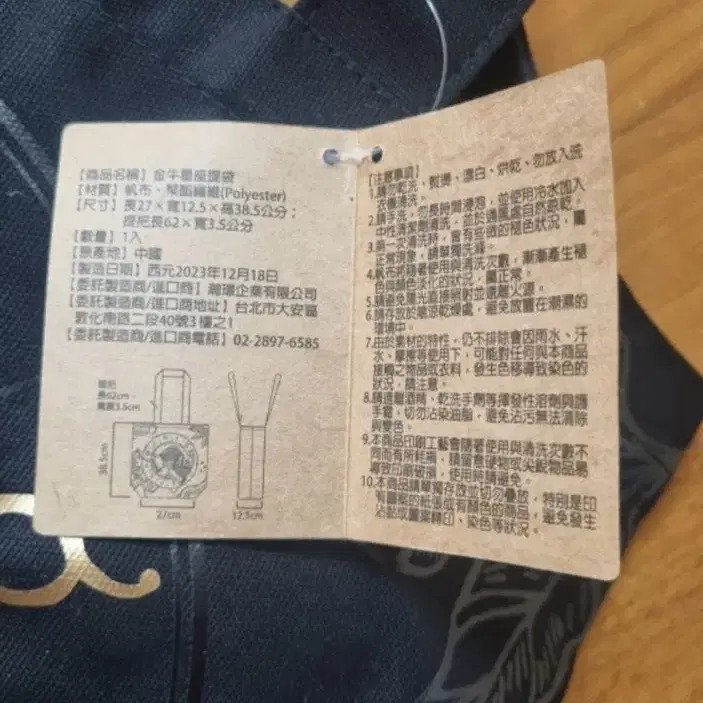 【商品名稱】金牛星座提袋
【材質】帆布、聚酯纖維(Polyester)
【尺寸】長27×寬12.5×高38.5公分；
提把長62×寬3.5公分
【數量】1入
【原產地】中國
【製造日期】西元2023年12月18日
【委託製造商/進口商】瀚璟企業有限公司
【委託製造商/進口商地址】台北市大安區
敦化南路二段40號3樓之1
【委託製造商/進口商電話】02-2897-6585
提把
長62cm，
寬約3.5cm
38.5cm
27cm
12.5cm
【注意事項】
1.請勿乾洗、熨燙、漂白、烘乾、勿放入洗
衣機清洗。
2.請手洗，勿長時間浸泡，並使用冷水加入
中性清潔劑清洗，並於通風處自然晾乾。
3.第一次清洗時，會有些微的褪色狀況，屬
正常現象，請單獨洗滌。
4.帆布將隨著使用與清洗次數，漸漸產生褪
色與顏色淡化的狀況，屬正常。
5.請避免陽光直接照射並遠離火源。
6.請存放於陰涼乾燥處，避免放置在潮濕的
環境中。
7.由於素材的特性，仍不排除會因雨水、汗
水、摩擦等使用下，可能對任何與本商品
接觸之物品或衣料，發生色移導致染色的
狀況，請注意。
8.請遠離酒精、乾洗手劑等揮發性溶劑與護
手霜，切勿沾染油脂，避免沾污無法清除
與變色。
9.本商品印刷工藝會隨著使用與清洗次數不
同而有所耗損，請留意硬物或尖銳物品易
導致印刷破損，使用時請避免。
10.本商品請單獨存放並切勿疊放，特別是印
有圖案的紙張或有顏色的商品，避免發生
沾黏或圖案轉印、染色等狀況。